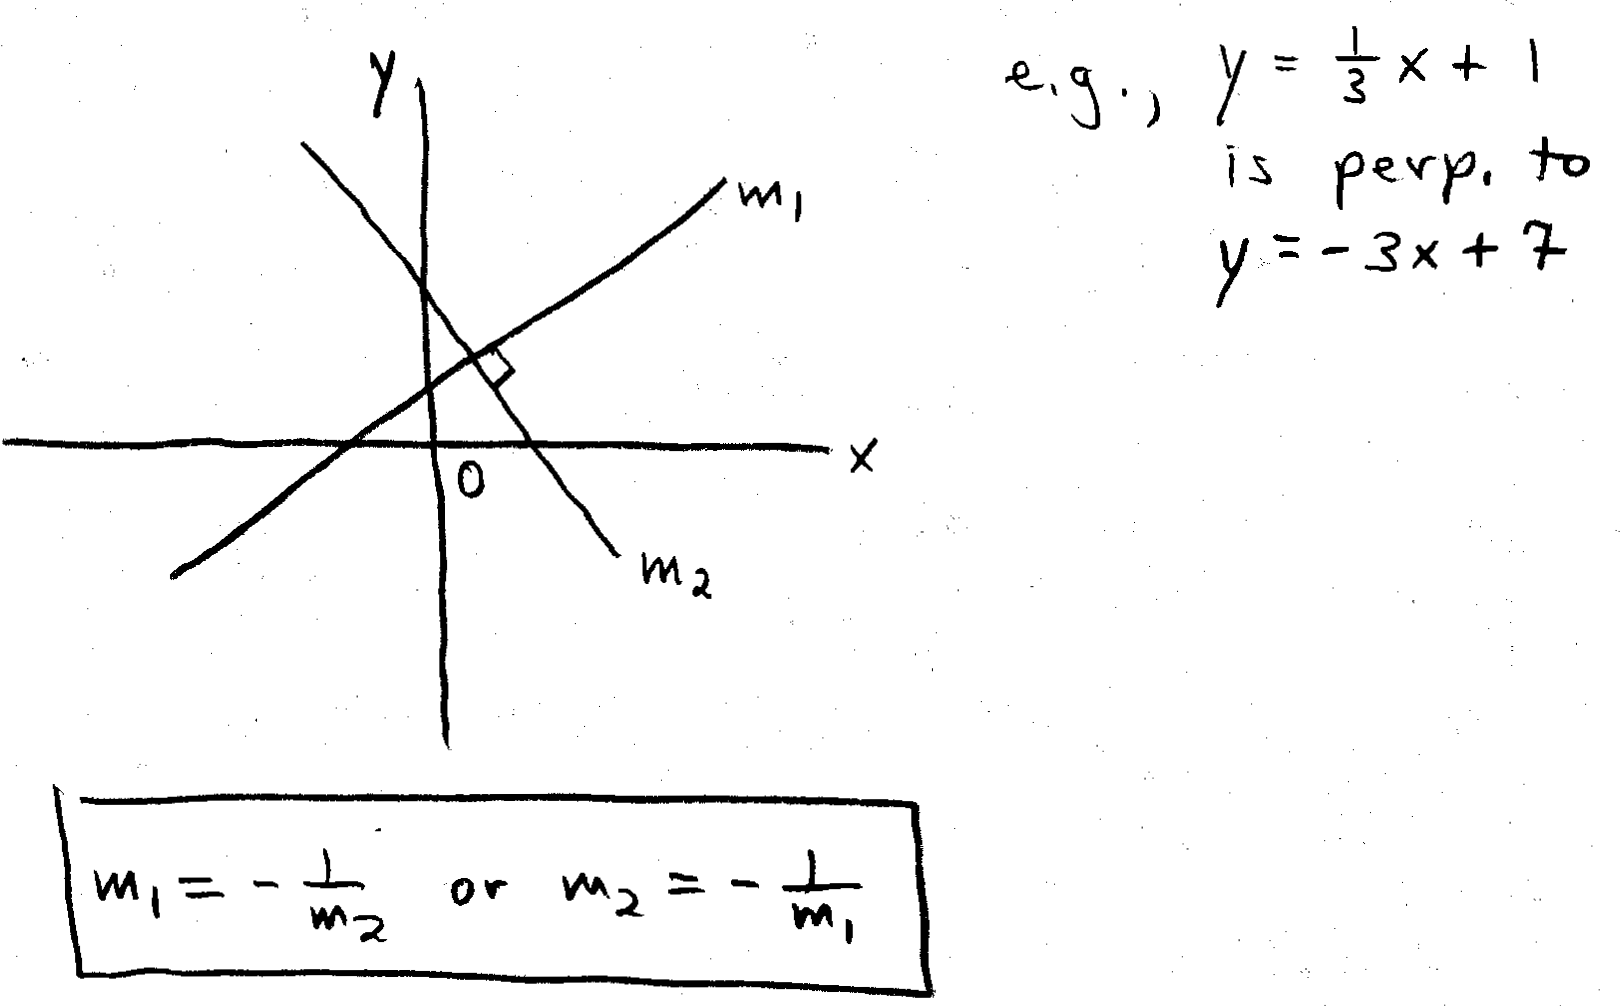 y
m₁
x
0
m₂
e.g., y = 1/3 x + 1
is perp. to
y = -3x + 7
m₁ = - 1/m₂ or m₂ = - 1/m₁